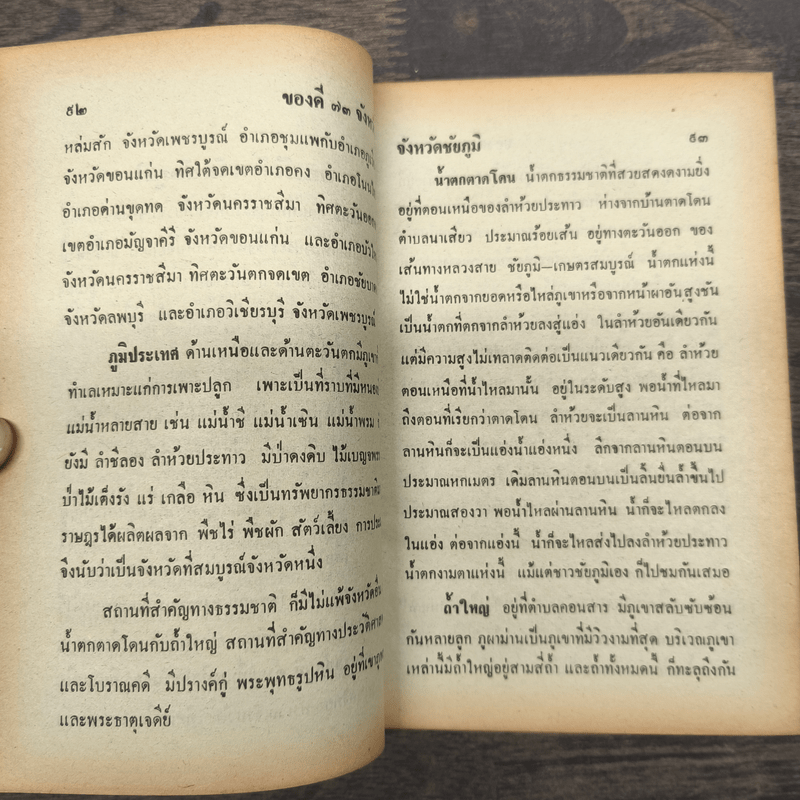 ๙๒ ของดี ๗๓
หล่มสัก จังหวัดเพชรบูรณ์ อำเภอชุมแพกับอำเภอ
จังหวัดขอนแก่น ทิศใต้จดเขตอำเภอคง
อำเภอด่านขุนทด จังหวัดนครราชสีมา ทิศตะวันออก
เขตอำเภอมัญจาคีรี จังหวัดขอนแก่น และอำเภอ
จังหวัดนครราชสีมา ทิศตะวันตกจดเขต อำเภอ
จังหวัดลพบุรี และอำเภอวิเชียรบุรี จังหวัดเพชรบูรณ์
ภูมิประเทศ ด้านเหนือและด้านตะวันตกมีภูเขา
ทำเลเหมาะแก่การเพาะปลูก เพาะเป็นที่ราบที่มี
แม่น้ำหลายสาย เช่น แม่น้ำชี แม่น้ำเชิน แม่น้ำพรม
ยังมี ลำชีลอง ลำห้วยประทาว มีป่าดงดิบ
ป่าไม้เต็งรัง แร่ เกลือ หิน ซึ่งเป็นทรัพยากรธรรมชาติ
ราษฎรได้ผลิตผลจาก พืชไร่ พืชผัก สัตว์เลี้ยง
จึงนับว่าเป็นจังหวัดที่สมบูรณ์จังหวัดหนึ่ง
สถานที่สำคัญทางธรรมชาติ ก็มีไม่แพ้จังหวัดอื่น
น้ำตกตาดโตนกับถ้ำใหญ่ สถานที่สำคัญทาง
และโบราณคดี มีปรางค์กู่ พระพุทธรูปหิน
และพระธาตุเจดีย์
จังหวัดชัยภูมิ ๙๓
น้ำตกตาดโตน น้ำตกธรรมชาติที่สวยสดงดงามยิ่ง
อยู่ที่ตอนเหนือของลำห้วยประทาว ห่างจากบ้านตาดโตน
ตำบลนาเสียว ประมาณร้อยเส้น อยู่ทางตะวันออก ของ
เส้นทางหลวงสาย ชัยภูมิ–เกษตรสมบูรณ์ น้ำตกแห่งนี้
ไม่ใช่น้ำตกจากยอดหรือไหล่ภูเขาหรือจากหน้าผาอันสูงชัน
เป็นน้ำตกที่ตกจากลำห้วยลงสู่แอ่ง ในลำห้วยอันเดียวกัน
แต่มีความสูงไม่เท่าลาดติดต่อเป็นแนวเดียวกัน คือ ลำห้วย
ตอนเหนือที่น้ำไหลมานั้น อยู่ในระดับสูง พอน้ำที่ไหลมา
ถึงตอนที่เรียกว่าตาดโตน ลำห้วยจะเป็นลานหิน ต่อจาก
ลานหินก็จะเป็นแอ่งน้ำแอ่งหนึ่ง ลึกจากลานหินตอนบน
ประมาณหกเมตร เดิมลานหินตอนบนเป็นลิ้นยื่นล้ำขึ้นไป
ประมาณสองวา พอน้ำไหลผ่านลานหิน น้ำก็จะไหลตกลง
ในแอ่ง ต่อจากแอ่งนี้ น้ำก็จะไหลส่งไปลงลำห้วยประทาว
น้ำตกงามตาแห่งนี้ แม้แต่ชาวชัยภูมิเอง ก็ไปชมกันเสมอ
ถ้ำใหญ่ อยู่ที่ตำบลคอนสาร มีภูเขาสลับซับซ้อน
กันหลายลูก ภูผาม่านเป็นภูเขาที่มีวิวงามที่สุด บริเวณภูเขา
เหล่านี้มีถ้ำใหญ่อยู่สามสี่ถ้ำ และถ้ำทั้งหมดนี้ ก็ทะลุถึงกัน